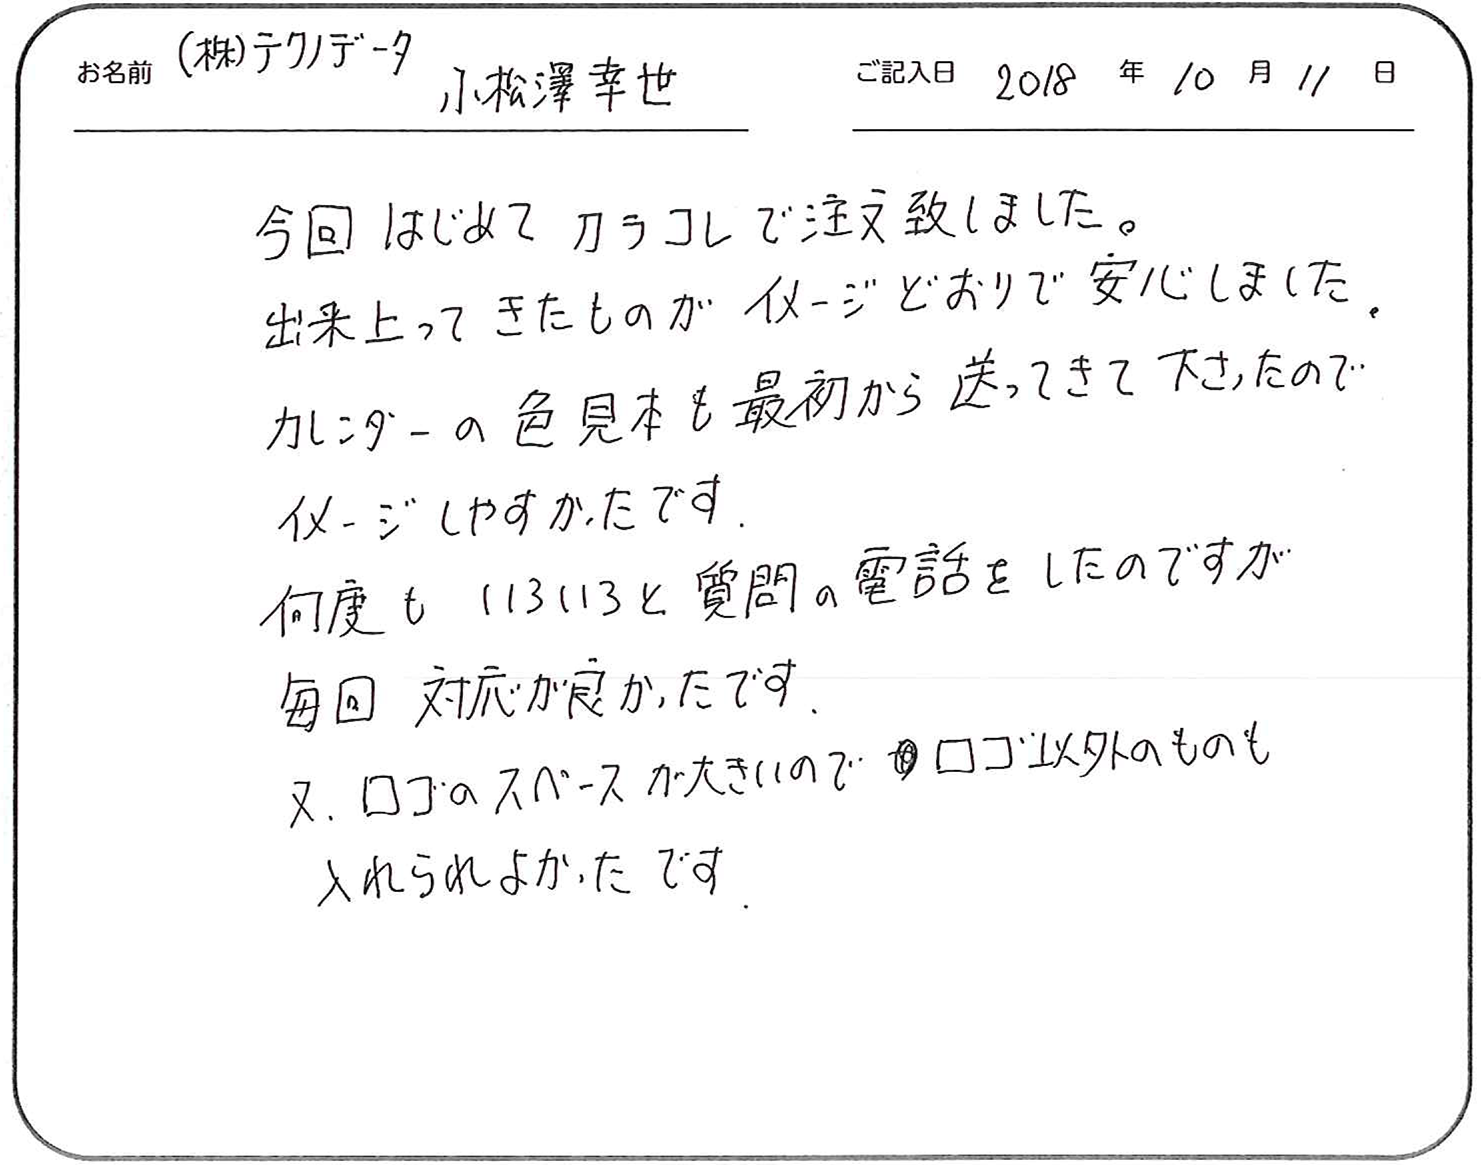 お名前 (株)テクノデータ 小松澤幸世 ご記入日 2018 年 10 月 11 日
今回はじめてカラコレで注文致しました。
出来上ってきたものがイメージどおりで安心しました.
カレンダーの色見本も最初から送ってきて下さったので
イメージしやすかったです.
何度もいろいろと質問の電話をしたのですが
毎回 対応が良かったです.
又. ロゴのスペースが大きいので ロゴ以外のものも
入れられよかったです.